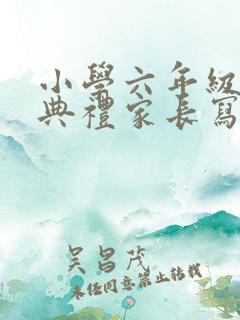 小學六年級
典禮家長寫
吴昌茂
未经同意禁止转载